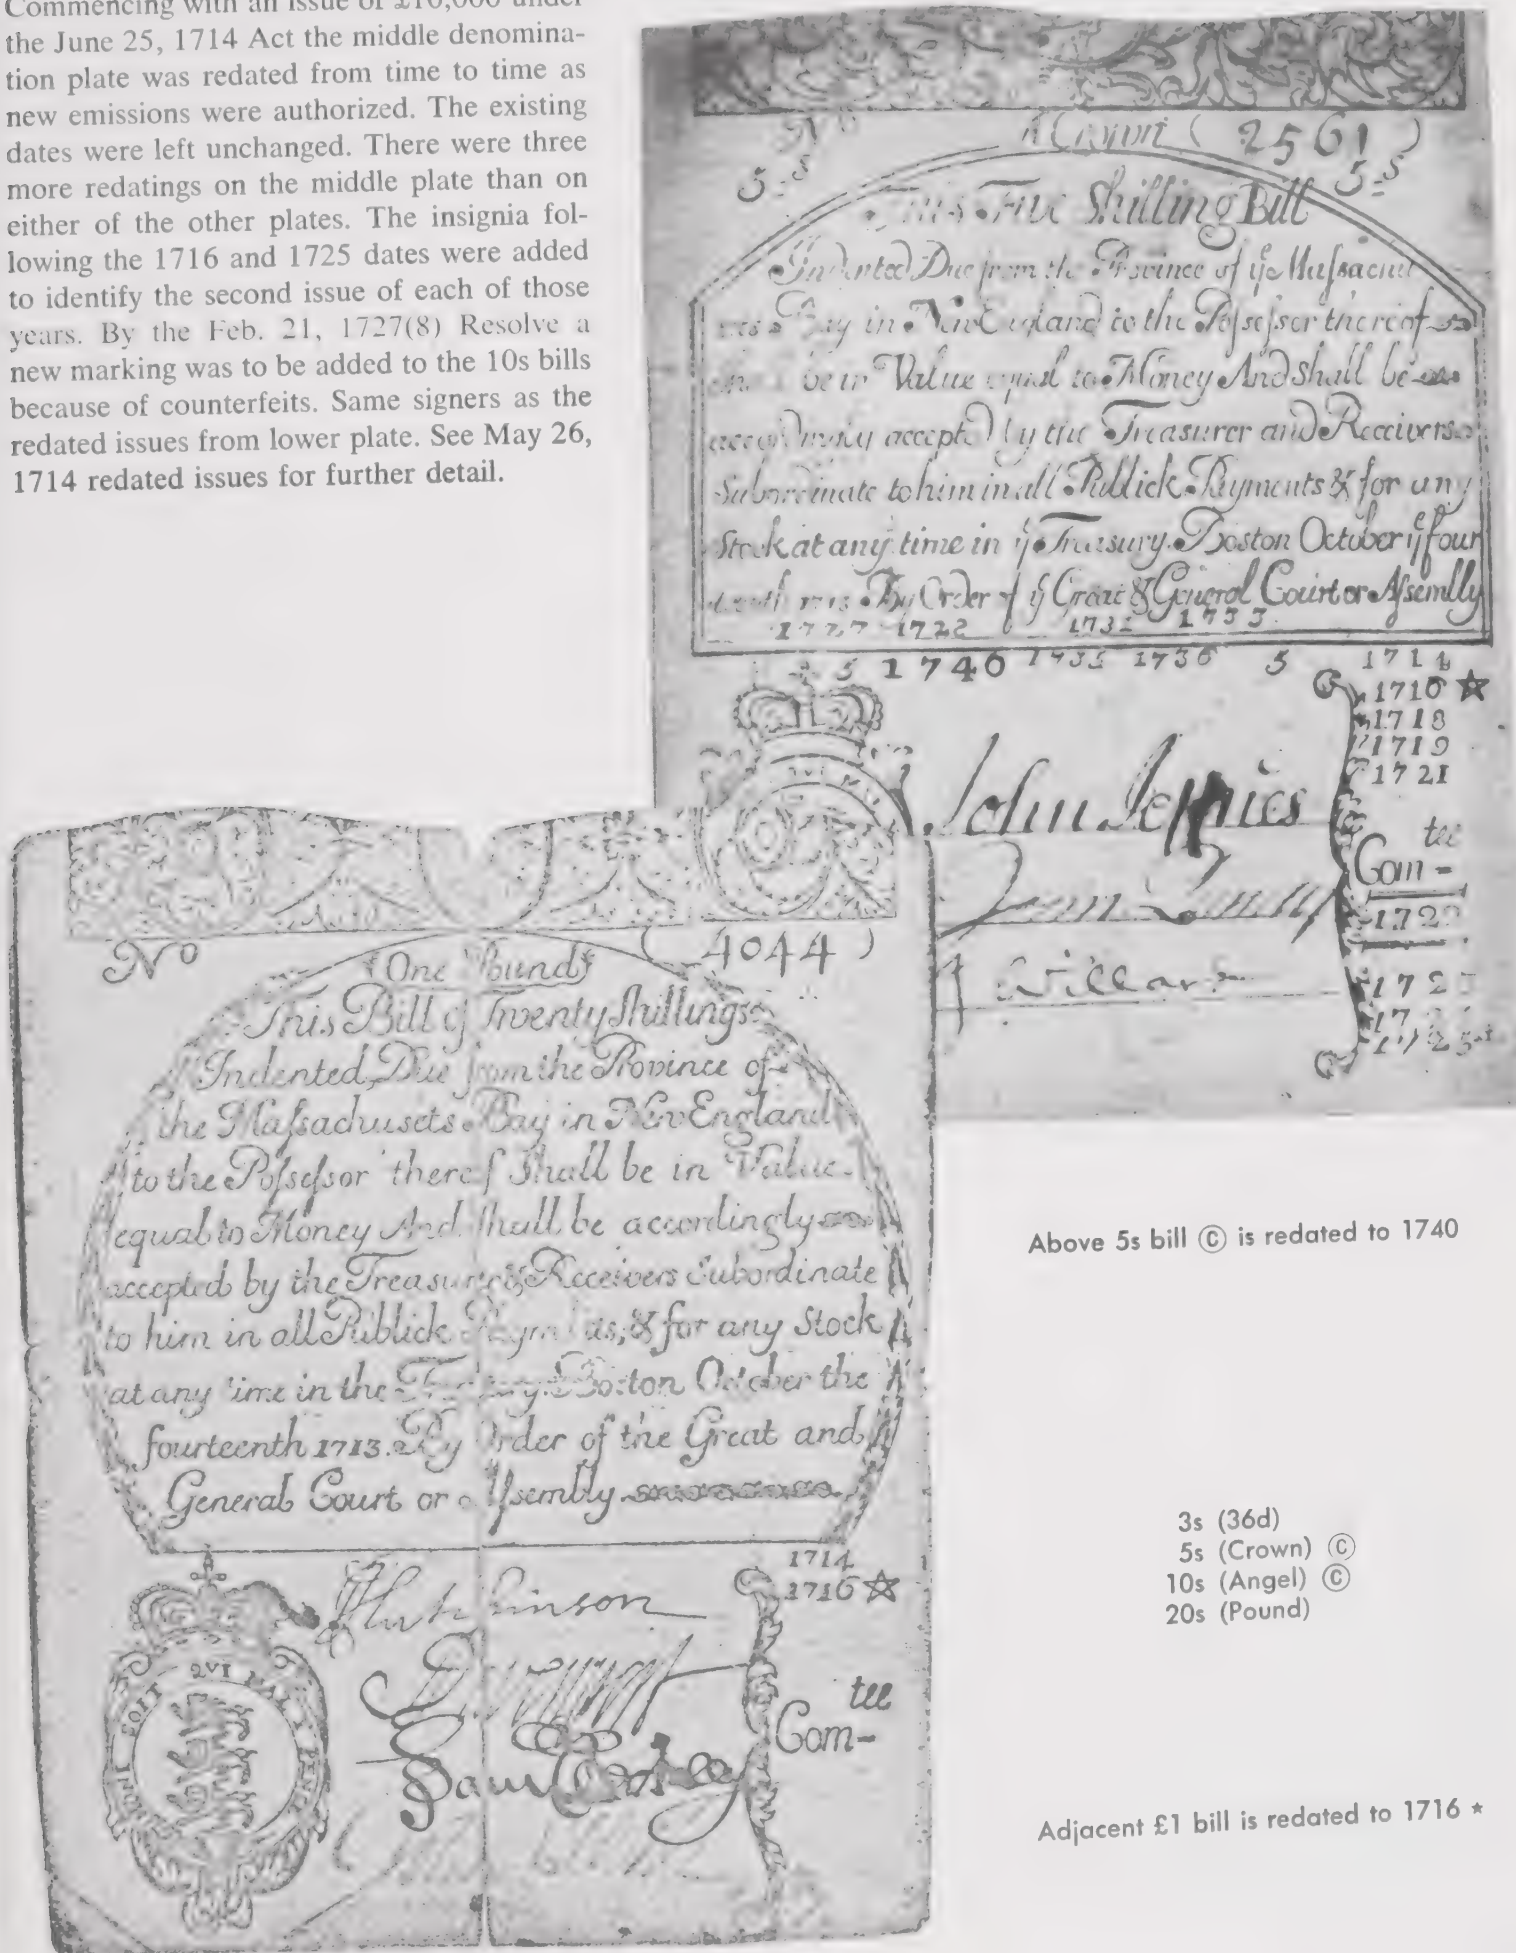 Commencing with an issue of £10,000 under
the June 25, 1714 Act the middle denomina-
tion plate was redated from time to time as
new emissions were authorized. The existing
dates were left unchanged. There were three
more redatings on the middle plate than on
either of the other plates. The insignia fol-
lowing the 1716 and 1725 dates were added
to identify the second issue of each of those
years. By the Feb. 21, 1727(8) Resolve a
new marking was to be added to the 10s bills
because of counterfeits. Same signers as the
redated issues from lower plate. See May 26,
1714 redated issues for further detail.
No A Crown ( 2561 )
5=s 5=s
This Five Shilling Bill
Indented Due from the Province of ye Massachu
sets Bay in New England to the Possessor thereof
be in Value equal to Money And shall be
accordingly accepted by the Treasurer and Receivers
Subordinate to him in all Publick Payments & for any
Stock at any time in ye Treasury. Boston October ye four
teenth 1713. By Order of ye Great & General Court or Assembly
1727 1728 1731 1733
5 1740 1735 1736 5 1714
1716 ☆
1718
1719
1721
John Jeffries
tee
Com-
Willard
No ( 4044 )
One Pound
This Bill of Twenty Shillings
Indented, Due from the Province of
the Massachusets Bay in New England
to the Possessor thereof Shall be in Value
equal to Money And Shall be accordingly
accepted by the Treasurer & Receivers Subordinate
to him in all Publick Payments, & for any Stock
at any time in the Treasury. Boston October the
fourteenth 1713. By Order of the Great and
General Court or Assembly
1714
1716 ☆
Hutchinson
tee
Com-
HONI SOIT QVI MAL Y PENSE
Above 5s bill Ⓒ is redated to 1740
3s (36d)
5s (Crown) Ⓒ
10s (Angel) Ⓒ
20s (Pound)
Adjacent £1 bill is redated to 1716 ★